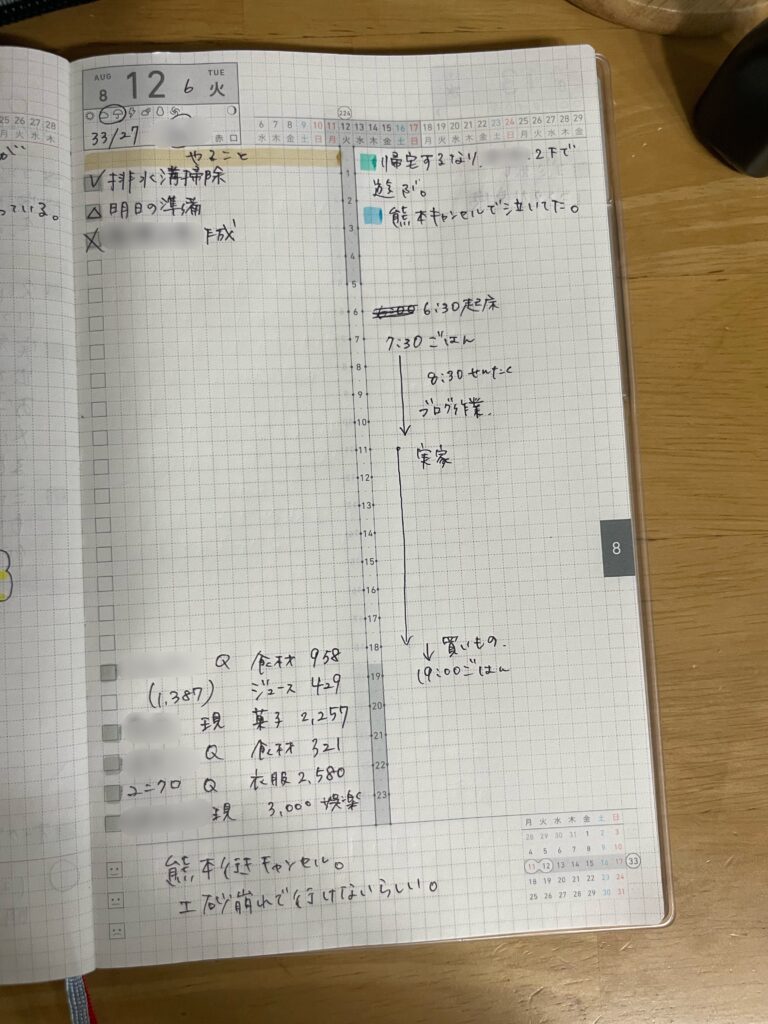 AUG 8 12 6 TUE 火
33/27 赤口
224
6 7 8 9 10 11 12 13 14 15 16 17 18 19 20 21 22 23 24 25 26 27 28 29
水 木 金 土 日 月 火 水 木 金 土 日 月 火 水 木 金 土 日 月 火 水 木 金
25 26 27 28
月 火 水 木
が
っている。
やること
排水溝掃除
明日の準備
作成
帰宅するなり、 2Fで
遊ぶ。
熊本キャンセルで泣いてた。
1
2
3
4
5
6
6:00 6:30起床
7
7:30 ごはん
8
8:30 せんたく
9
ブログ作業。
10
11
実家
12
13
14
15
16
17
18
買いもの。
19:00ごはん
19
20
21
22
23
8
Q 食材 958
(1,387) ジュース 429
現 菓子 2,257
Q 食材 321
ユニクロ Q 衣服 2,580
現 3,000 娯楽
熊本行きキャンセル。
土砂崩れで行けないらしい。
月 火 水 木 金 土 日
28 29 30 31 1 2 3
4 5 6 7 8 9 10
11 12 13 14 15 16 17 33
18 19 20 21 22 23 24
25 26 27 28 29 30 31